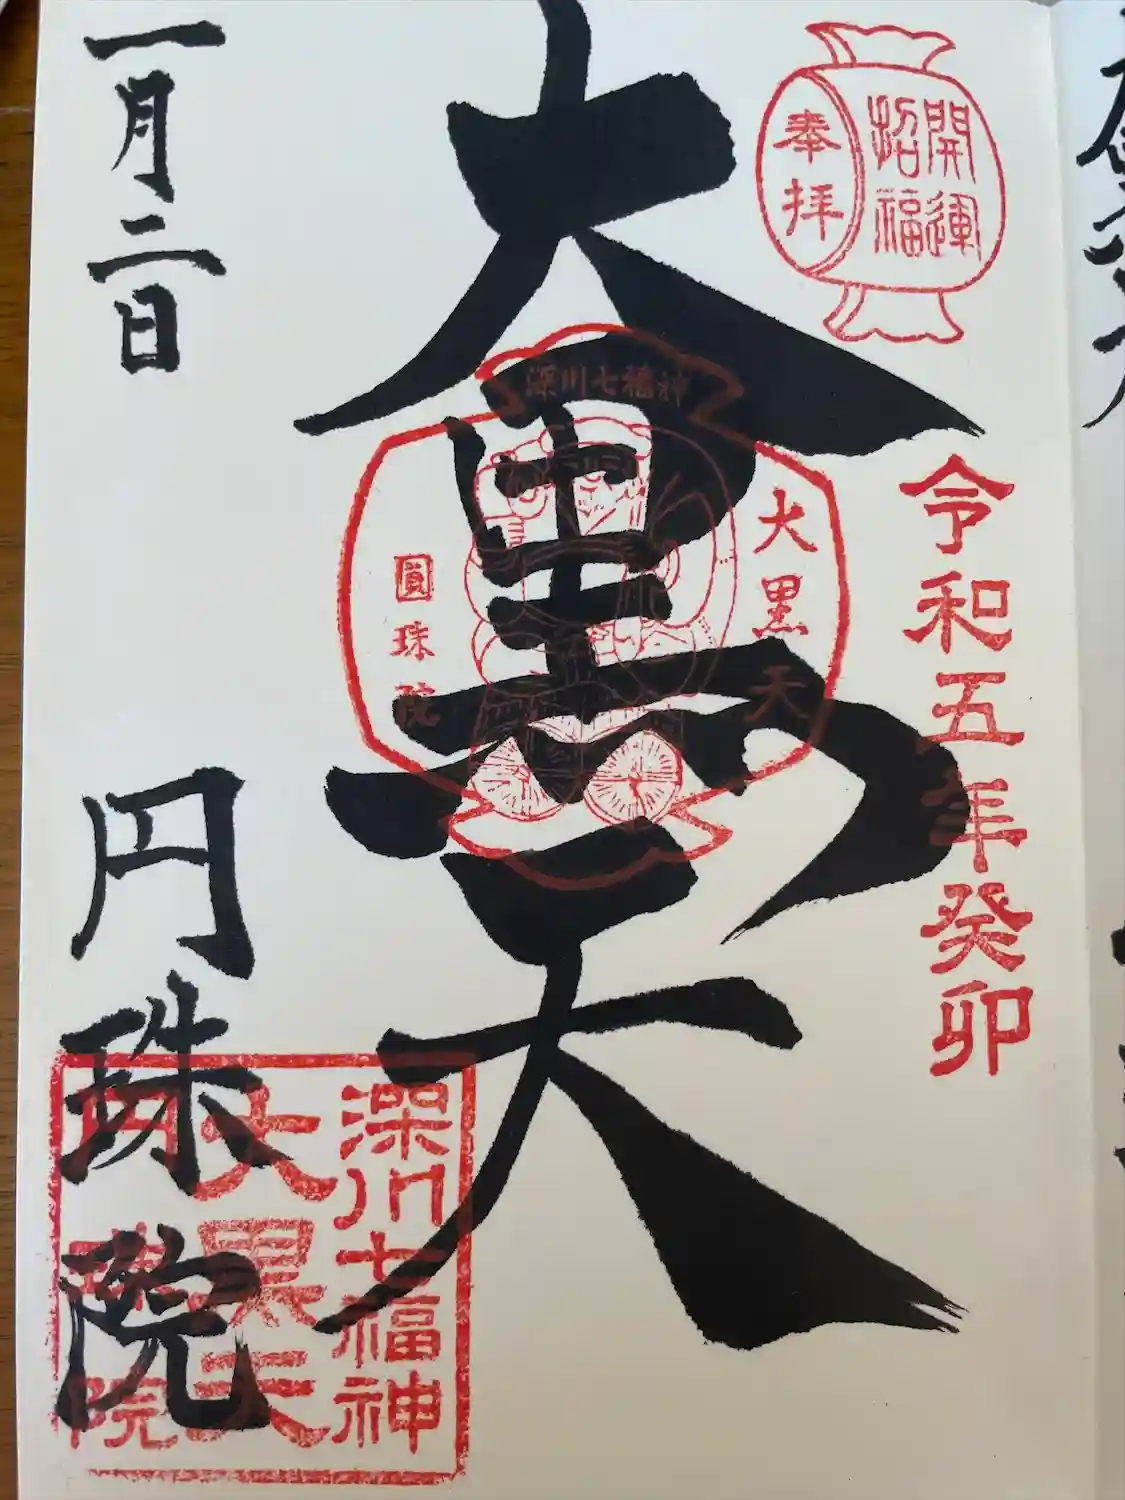 開運
招福
奉拝
令和五年癸卯
大黒天
深川七福神
大黒天
圓珠院
一月二日
円珠院
深川七福神
大黒天
円珠院